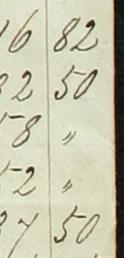 16 82
32 50
58 〃
52 〃
37 50